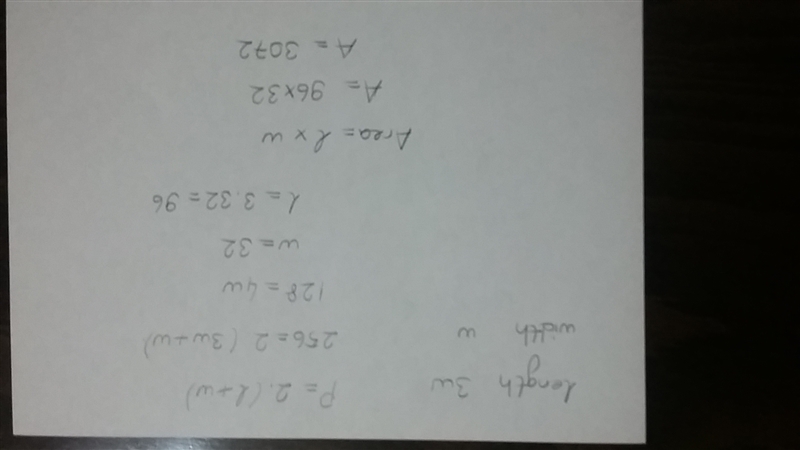 length 3w P= 2.(l+w)
width w 256=2 (3w+w)
128=4w
w=32
l= 3.32=96
Area= l x w
A= 96x32
A= 3072